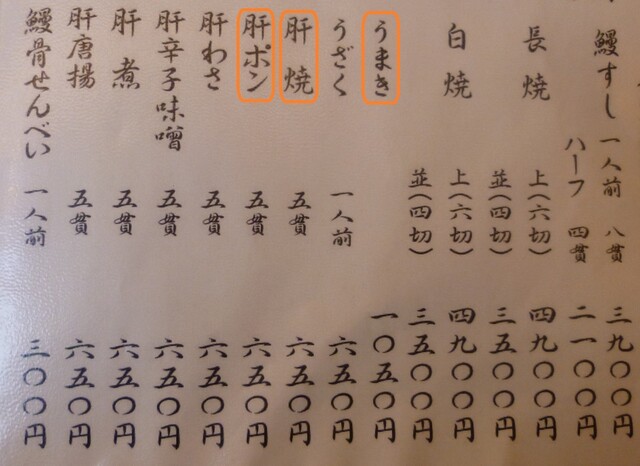 鰻すし 一人前 八貫 三九〇〇円
ハーフ 四貫 二一〇〇円
長焼 上(六切) 四九〇〇円
並(四切) 三五〇〇円
白焼 上(六切) 四九〇〇円
並(四切) 三五〇〇円
うまき 一〇五〇円
うざく 一人前 六五〇円
肝焼 五貫 六五〇円
肝ポン 五貫 六五〇円
肝わさ 五貫 六五〇円
肝辛子味噌 五貫 六五〇円
肝煮 五貫 六五〇円
肝唐揚 五貫 六五〇円
鰻骨せんべい 一人前 三〇〇円